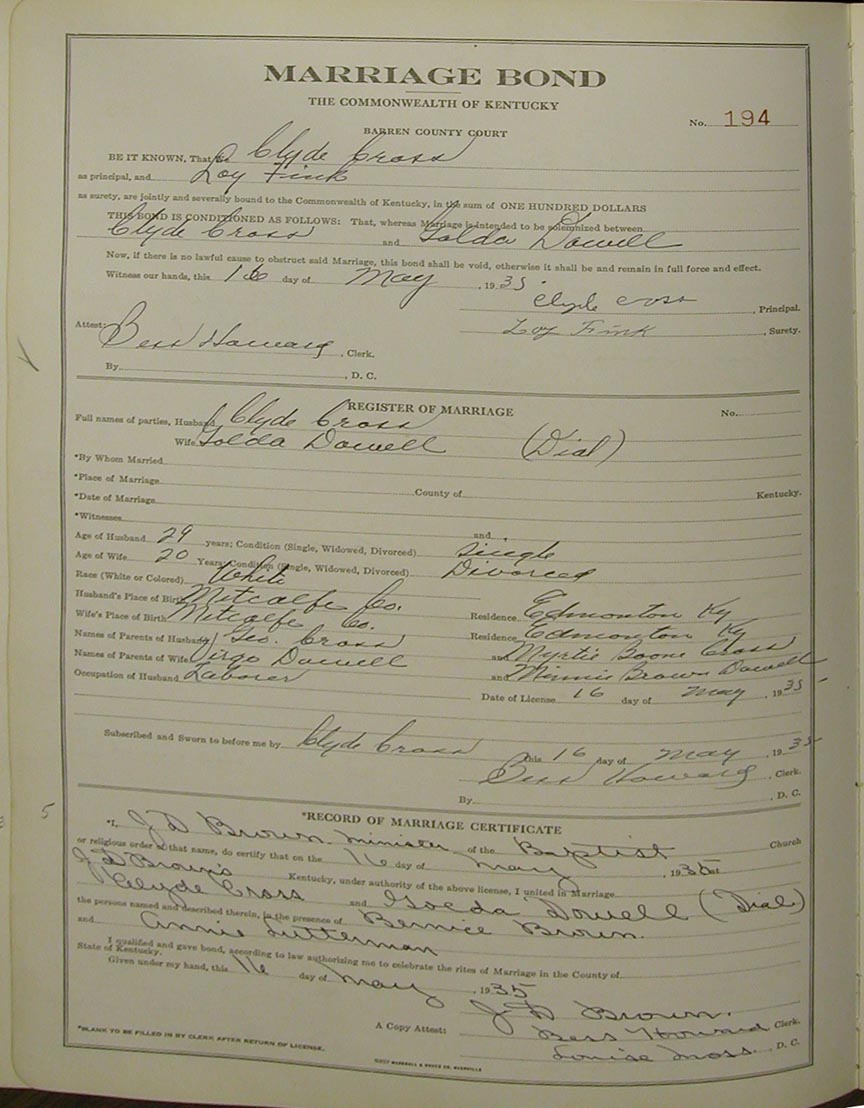 MARRIAGE BOND
THE COMMONWEALTH OF KENTUCKY
No. 194
BARREN COUNTY COURT
BE IT KNOWN, That we Clyde Cross
as principal, and Loy Fink
as surety, are jointly and severally bound to the Commonwealth of Kentucky, in the sum of ONE HUNDRED DOLLARS
THIS BOND IS CONDITIONED AS FOLLOWS: That, whereas Marriage is intended to be solemnized between
Clyde Cross and Golda Dowell
Now, if there is no lawful cause to obstruct said Marriage, this bond shall be void, otherwise it shall be and remain in full force and effect.
Witness our hands, this 16 day of May, 1935
Clyde Cross, Principal.
Loy Fink, Surety.
Attest: Bess Howard, Clerk.
By , D. C.
REGISTER OF MARRIAGE No.
Full names of parties, Husband Clyde Cross
Wife Golda Dowell (Dial)
*By Whom Married
*Place of Marriage County of Kentucky.
*Date of Marriage
*Witnesses and
Age of Husband 29 years; Condition (Single, Widowed, Divorced) Single
Age of Wife 20 Years; Condition (Single, Widowed, Divorced) Divorced
Race (White or Colored) White
Husband's Place of Birth Metcalfe Co. Residence Edmonton Ky
Wife's Place of Birth Metcalfe Co. Residence Edmonton Ky
Names of Parents of Husband Geo. Cross and Myrtie Boone Cross
Names of Parents of Wife Virge Dowell and Minnie Brown Dowell
Occupation of Husband Laborer Date of License 16 day of May, 1935
Subscribed and Sworn to before me by Clyde Cross this 16 day of May, 1935
Bess Howard, Clerk.
By , D. C.
5
*RECORD OF MARRIAGE CERTIFICATE
*I, J D Brown Minister of the Baptist Church
or religious order of that name, do certify that on the 16 day of May, 1935 at
J D Brown's Kentucky, under authority of the above license, I united in Marriage
Clyde Cross and Golda Dowell (Dial)
the persons named and described therein, in the presence of Bernice Brown.
and Annie Lutterman
I qualified and gave bond, according to law authorizing me to celebrate the rites of Marriage in the County of
State of Kentucky.
Given under my hand, this 16 day of May, 1935
J D Brown.
A Copy Attest: Bess Howard Clerk.
Louise Moss, D. C.
*BLANK TO BE FILLED IN BY CLERK AFTER RETURN OF LICENSE.
MARSHALL & BRUCE CO. NASHVILLE